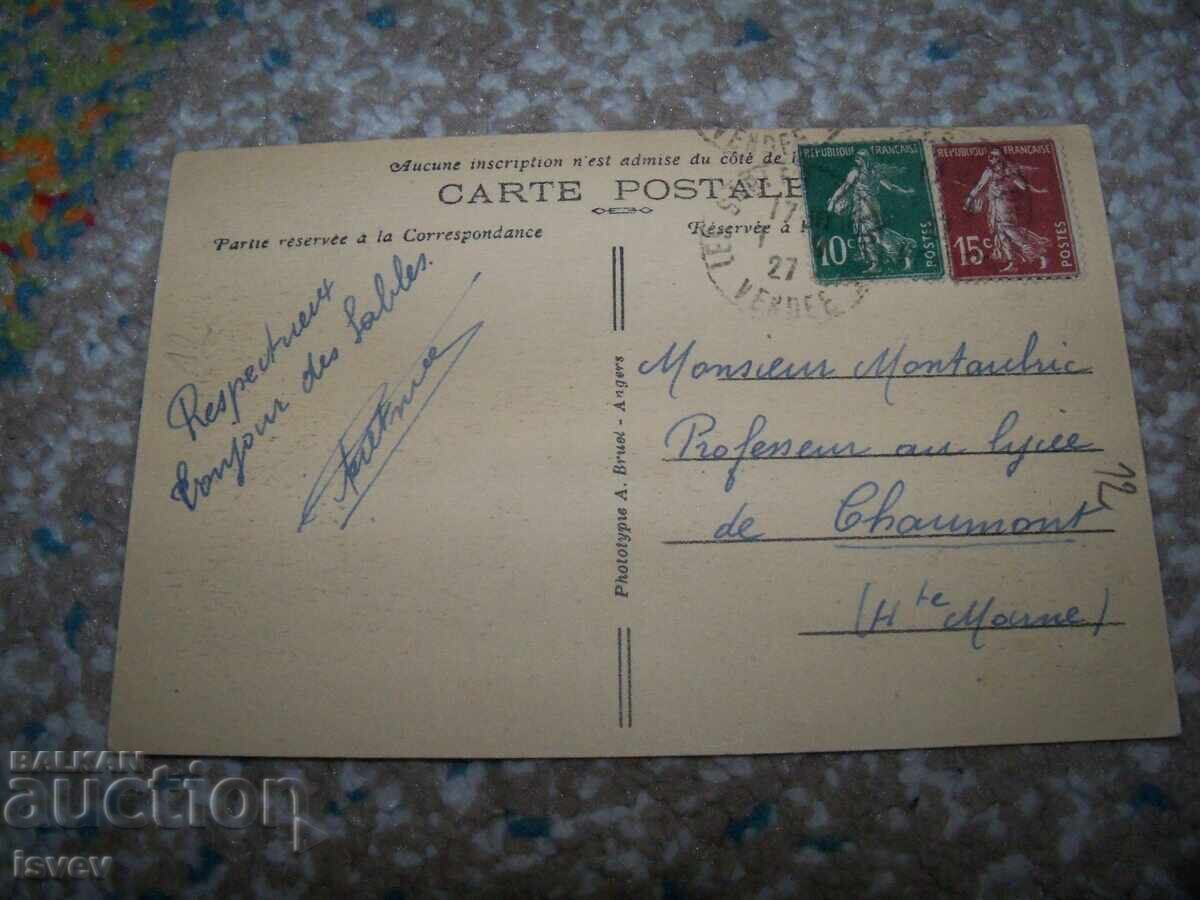 Aucune inscription n'est admise du côté de l
CARTE POSTALE
Partie réservée à la Correspondance
Réservée à
REPUBLIQUE FRANÇAISE
10c
POSTES
REPUBLIQUE FRANÇAISE
15c
POSTES
VENDEE
LES S
17
7
27
VENDEE
Respectueux
bonjour des Sables.
Phototypie A. Bruel - Angers
Monsieur Montaubric
Professeur au lycée
de Chaumont
12
(Hte Marne)
BALKAN
auction
isvev